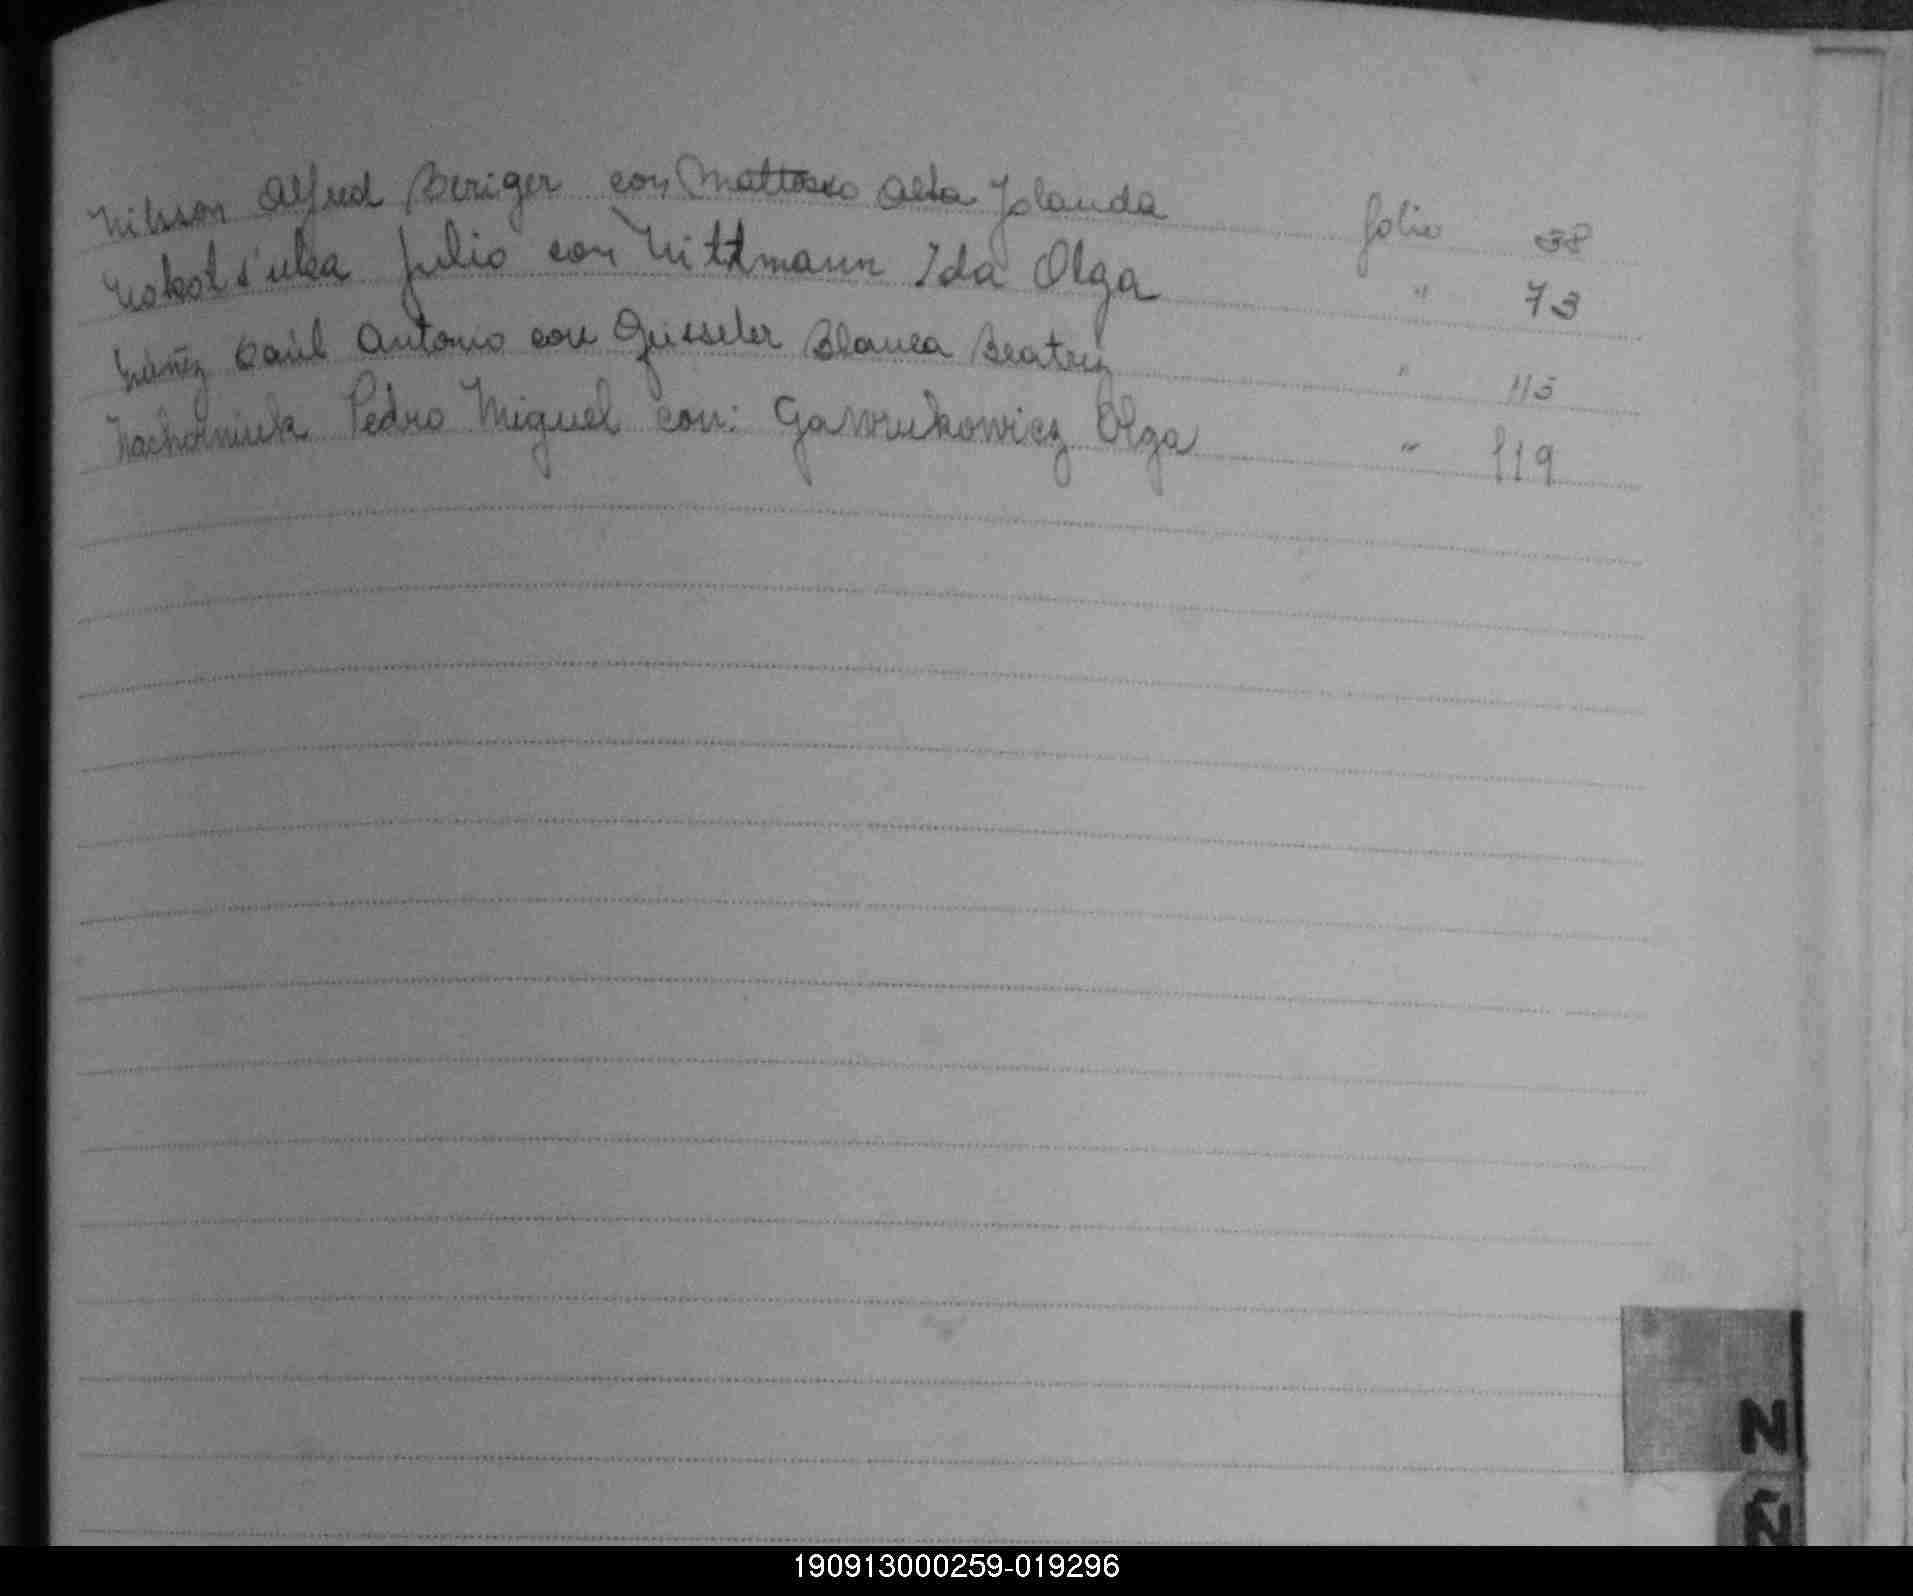 Nilsson Alfred Beriger con Mattosso Alba Jolanda folio 58
Nokotsuka Julio con Nittmann Ida Olga " 73
Núñez Raúl Antonio con Geisseler Blanca Beatriz " 115
Nachorniuk Pedro Miguel con: Gawrukowicz Olga " 119
N
Ñ
190913000259-019296